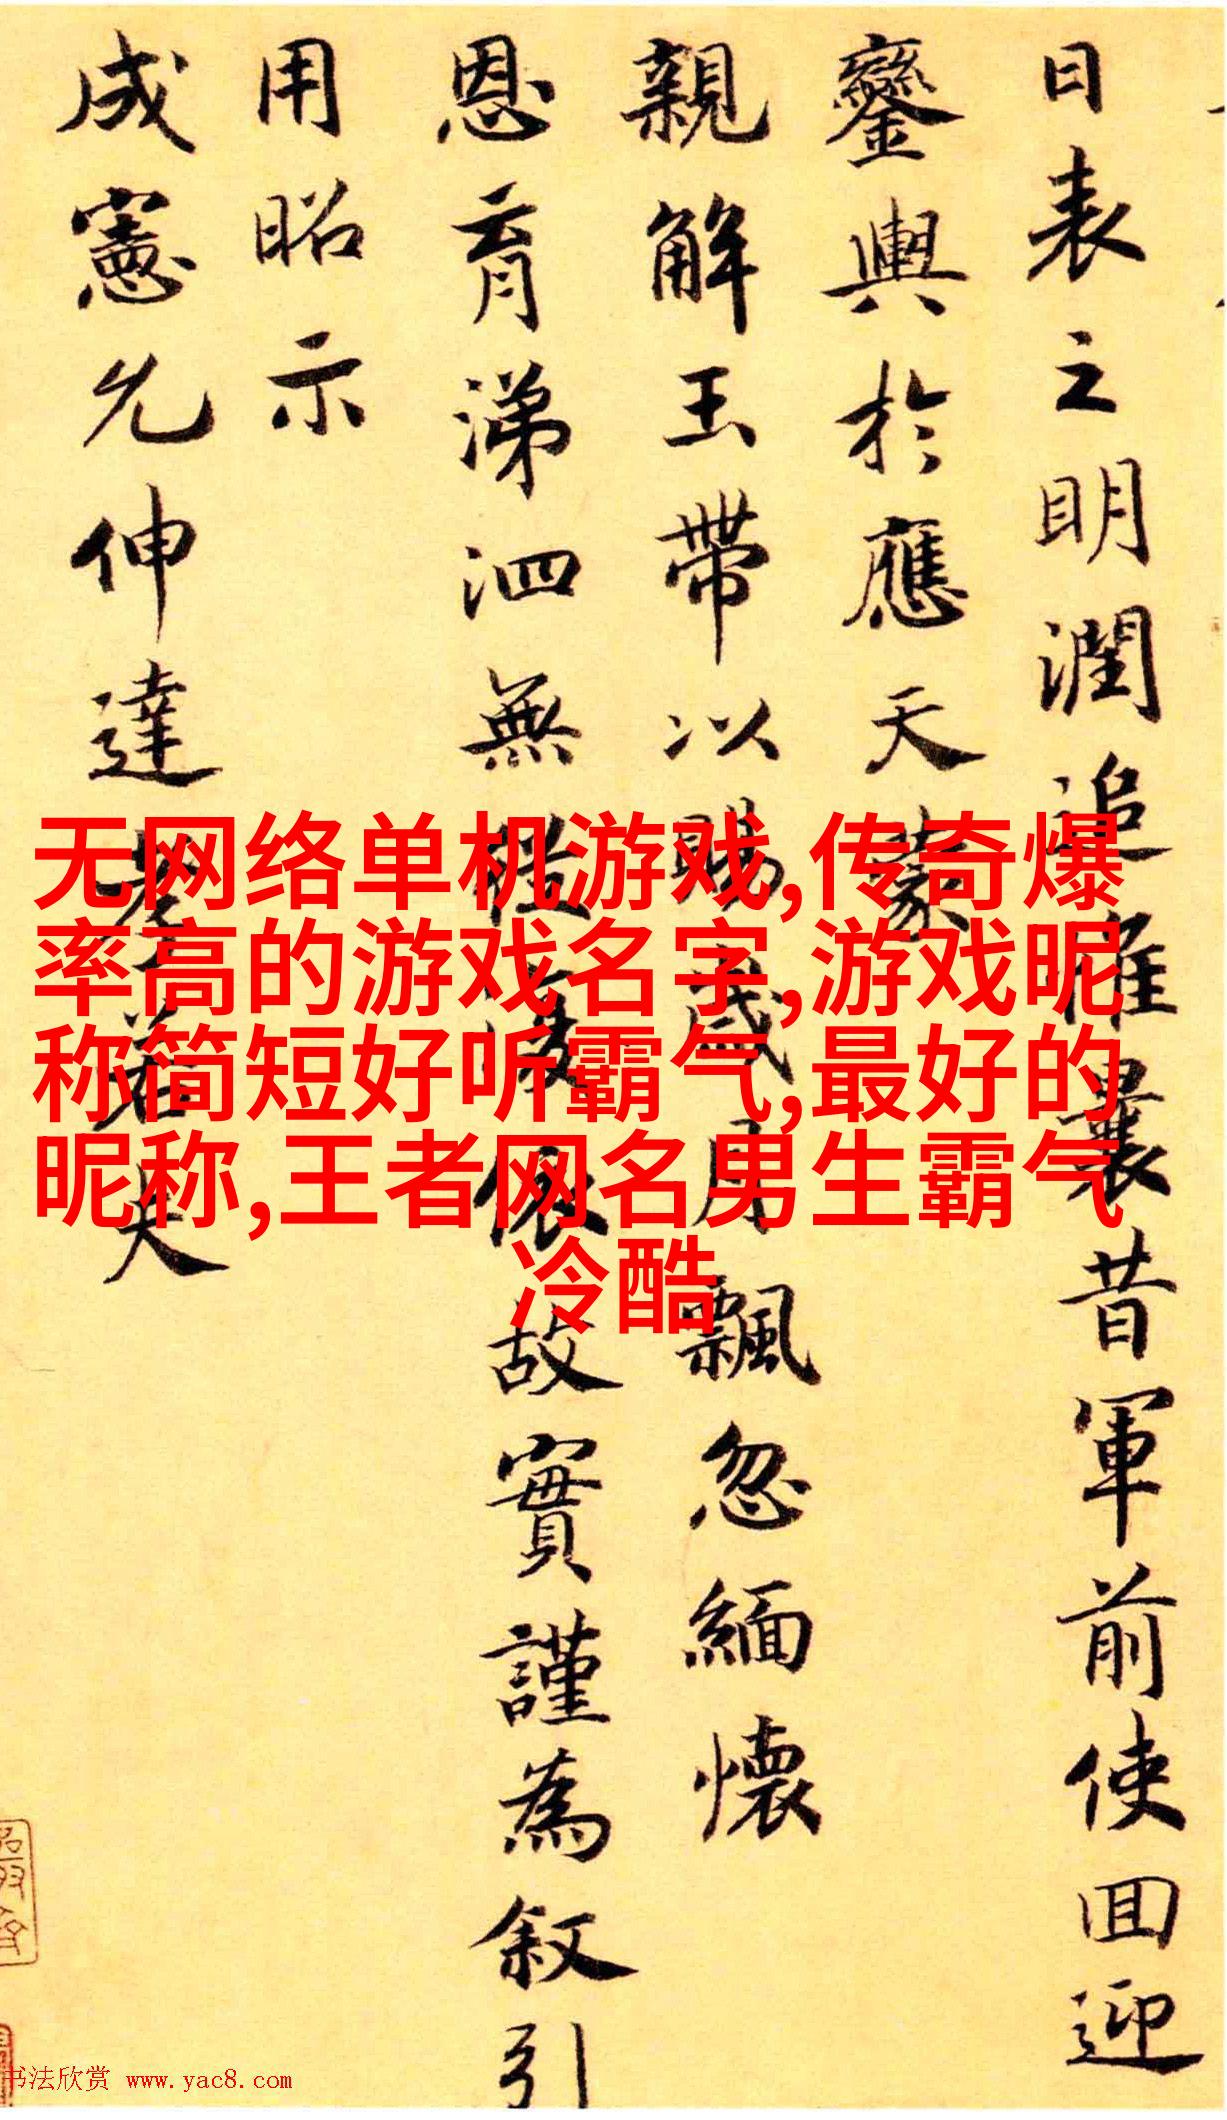 日表之明潤追惟曩昔軍前使回迎
鑾輿於應天蒙
親解玉帶以賜歲月飄忽緬懷
恩育涕泗無依故實謹為叙引
用昭示
成憲允伸達孝若夫
无网络单机游戏,传奇爆
率高的游戏名字,游戏昵
称简短好听霸气,最好的
昵称,王者网名男生霸气
冷酷
书法欣赏 www.yac8.com